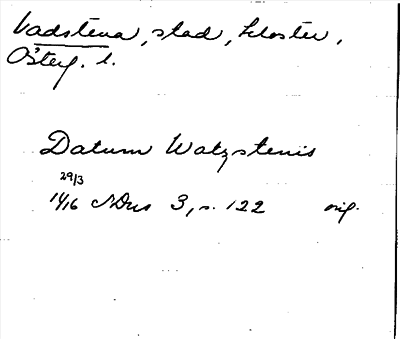 Vadstena, stad, kloster,
Österg. l.
Datum Watzstenis
29/3
1416 SDns 3, s. 122 orig.